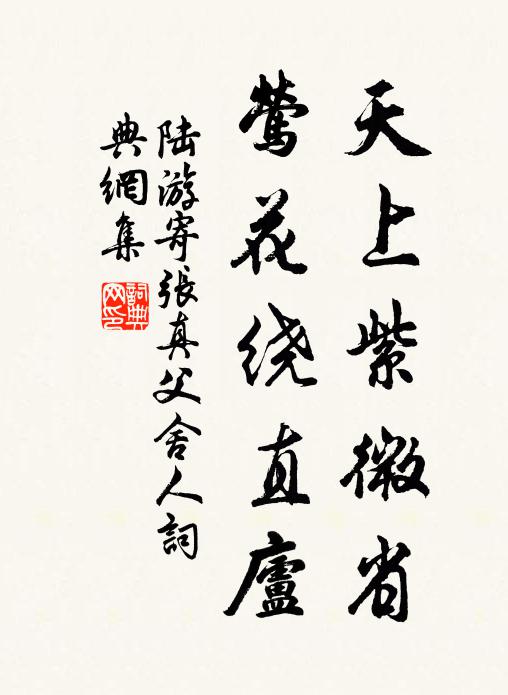 天上紫微省
莺花绕直廬
陆游寄張真父舍人詞
典網集
詞典网印